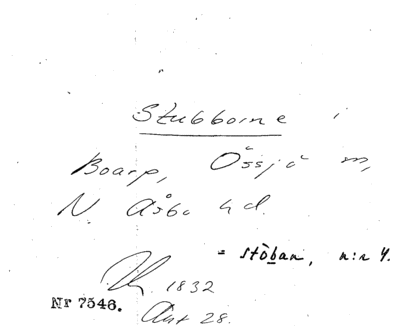 Stubborne i
Boarp, Össjö m,
N. Åsbo hd.
= stöban, n:r 4.
1832
Nr 7546.
Ant 28.